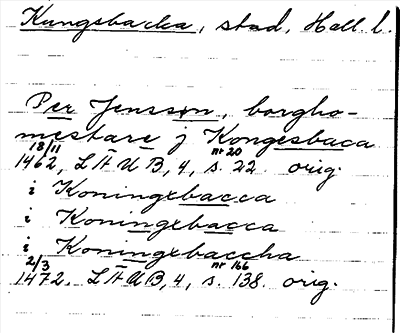 Kungsbacka, stad, Hall. l.
Per Jensson, borgho-
mestare j Kongesbaca
18/11 nr 20
1462, LÄUB, 4, s. 22. orig.
i Koningxbacca
i Koningxbacca
i Koningxbaccha
2/3 nr 166
1472. LÄUB, 4, s. 138. orig.